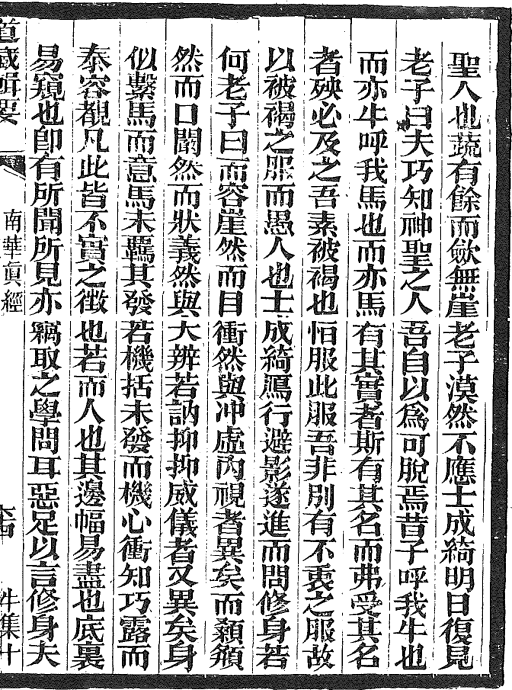 聖人也蔬有餘而歛無崖老子漠然不應士成綺明日復見
老子曰夫巧知神聖之人吾自以爲可脫焉昔子呼我牛也
而亦牛呼我馬也而亦馬有其實者斯有其名而弗受其名
者殃必及之吾素被褐也怕服此服吾非別有不衷之服故
以被褐之服而愚人也士成綺鴈行避影遂進而問修身若
何老子曰而容崖然而目衝然與冲虛內視者異矣而顙頯
然而口闞然而狀義然與大辨若訥抑抑威儀者又異矣身
似繫馬而意馬未羈其發若機括未發而機心衝知巧露而
泰容覩凡此皆不實之徵也若而人也其邊幅易盡也底裏
易窺也卽有所聞所見亦竊取之學問耳惡足以言修身夫
道藏輯要 南華眞經 集十